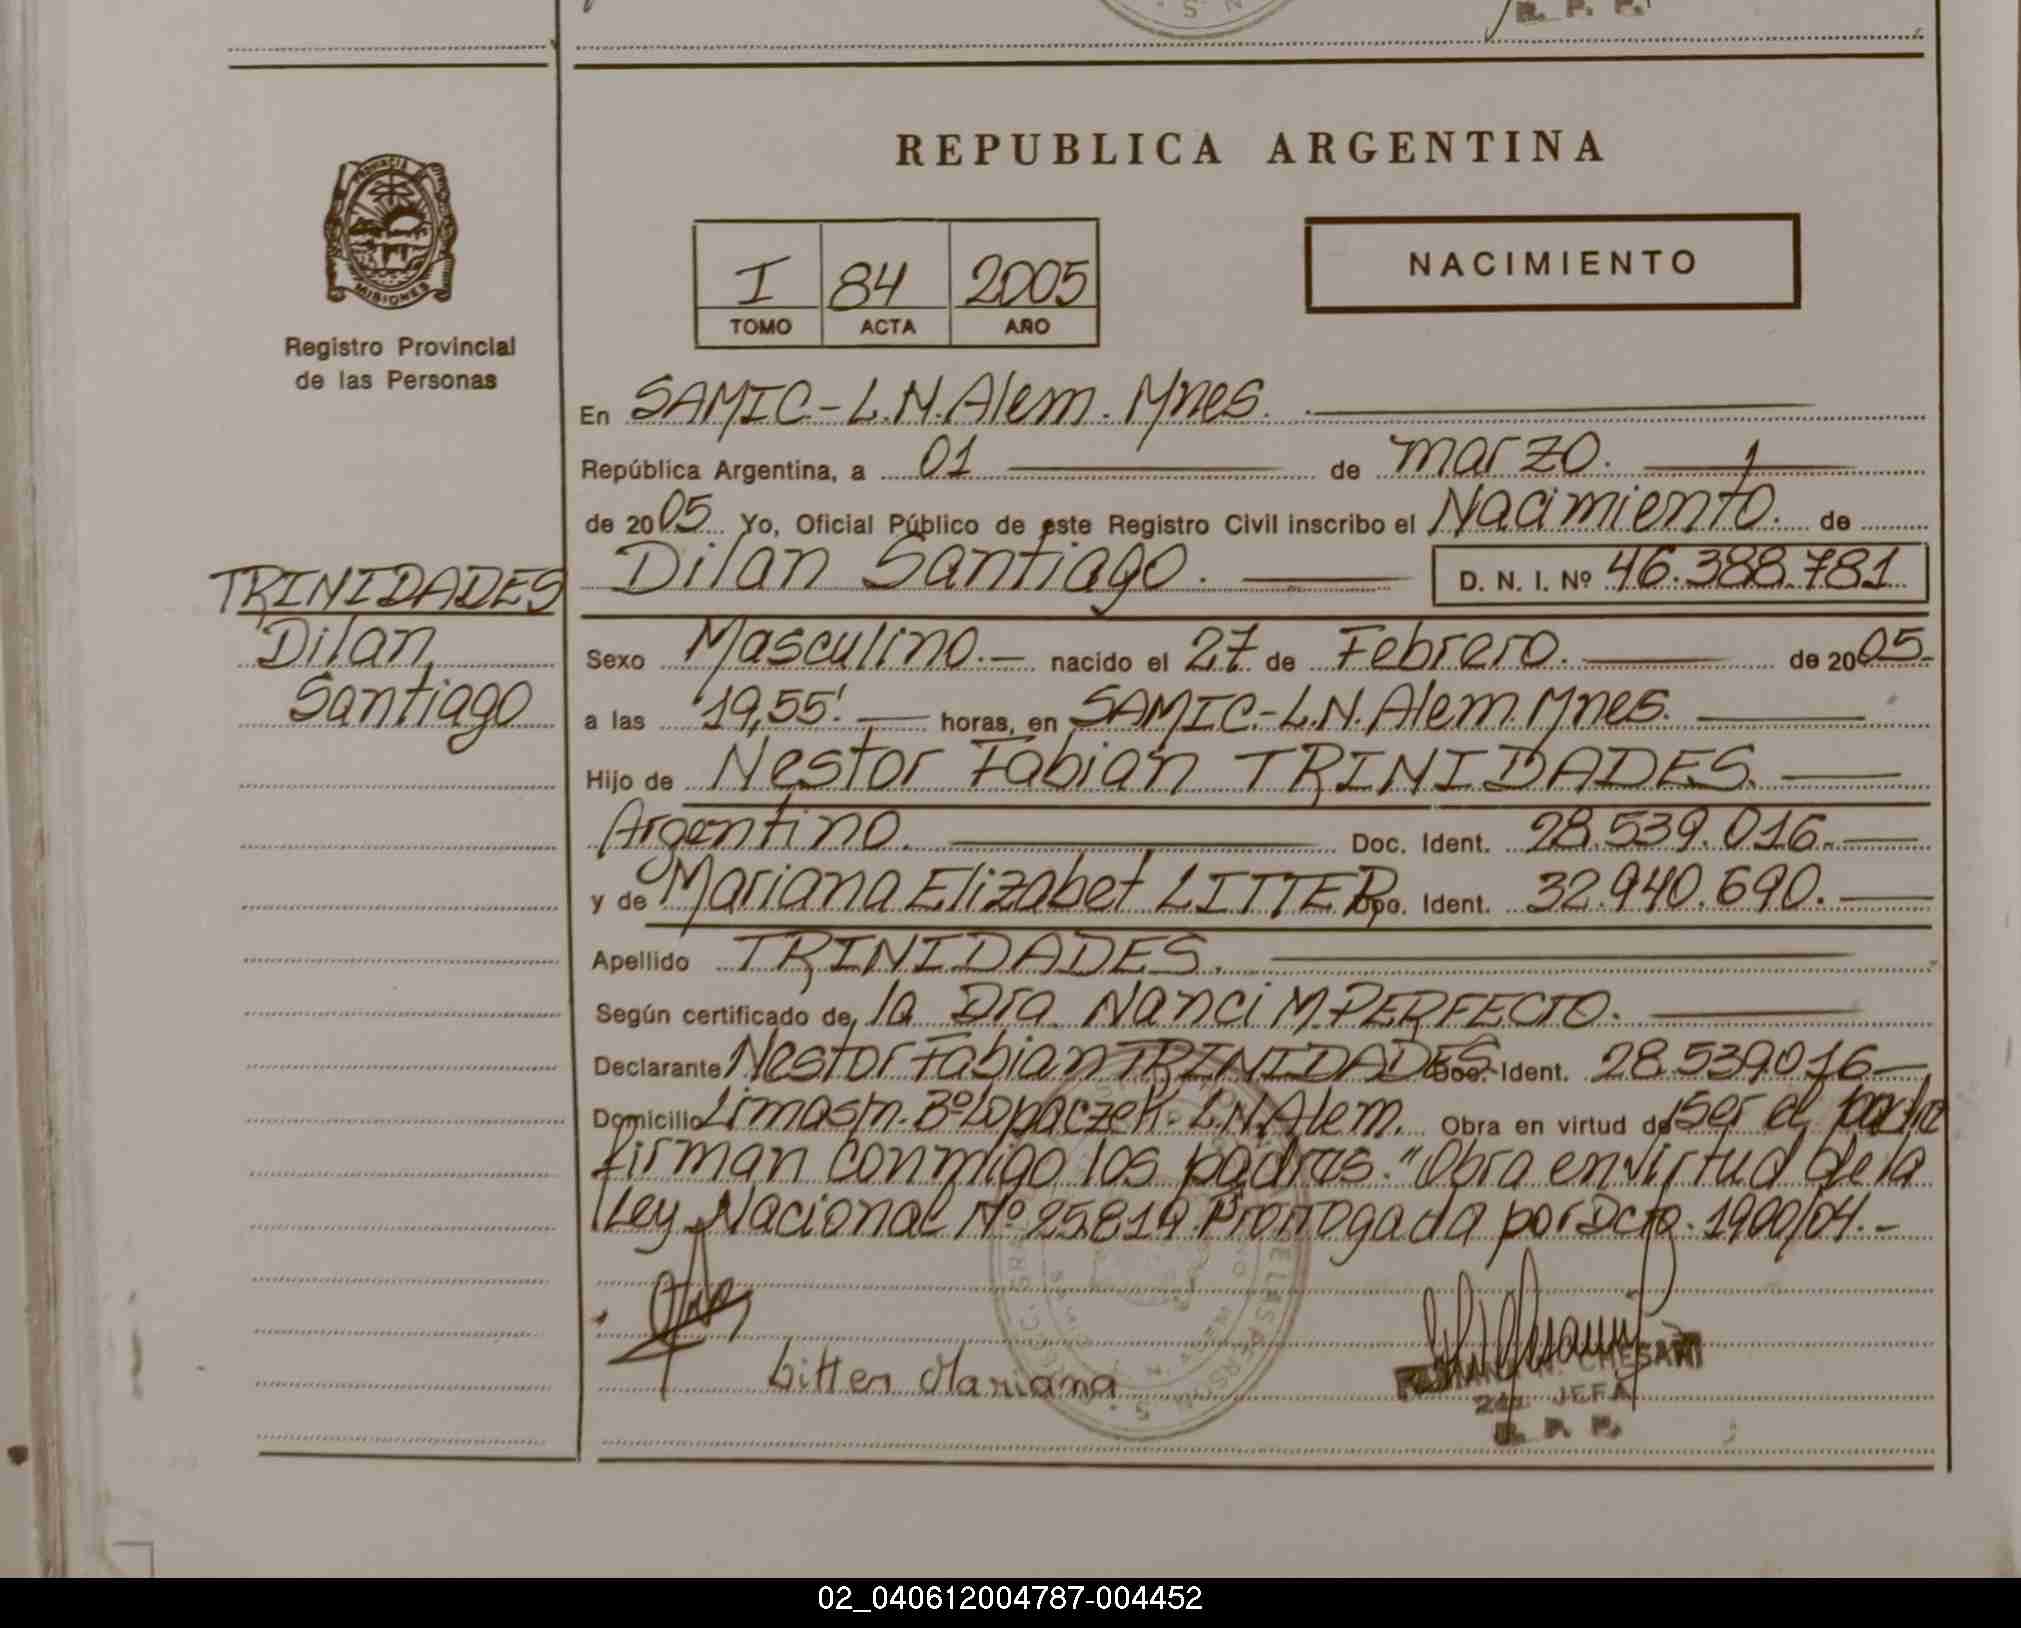 R. P. P.
REPUBLICA ARGENTINA
PROVINCIA
MISIONES
Registro Provincial
de las Personas
I 84 2005
TOMO ACTA AÑO
NACIMIENTO
En SAMIC.-L.N.Alem. Mnes.
República Argentina, a 01 de marzo.
de 2005 Yo, Oficial Público de este Registro Civil inscribo el Nacimiento. de
Dilan Santiago. D. N. I. Nº 46.388.781
TRINIDADES
Dilan
Santiago
Sexo Masculino.- nacido el 27 de Febrero. de 2005-
a las 19,55' horas, en SAMIC.-L.N.Alem.Mnes.
Hijo de Nestor Fabian TRINIDADES.
Argentino. Doc. Ident. 28.539.016.
y de Mariana Elizabet LITTER Doc. Ident. 32.940.690.
Apellido TRINIDADES.
Según certificado de la Dra Nanci M.PERFECTO.
Declarante Nestor Fabian TRINIDADES Doc. Ident. 28.539.016
Domicilio Limasm. Bº Lopaczek. L.N.Alem. Obra en virtud de ser el padre
firman conmigo los padres. "Obra en virtud de la
Ley Nacional Nº 25819 Prorrogada por Dcto. 1900/04.-
Litter Mariana
CHESANI
2da. JEFA
R. P. P.
02_040612004787-004452